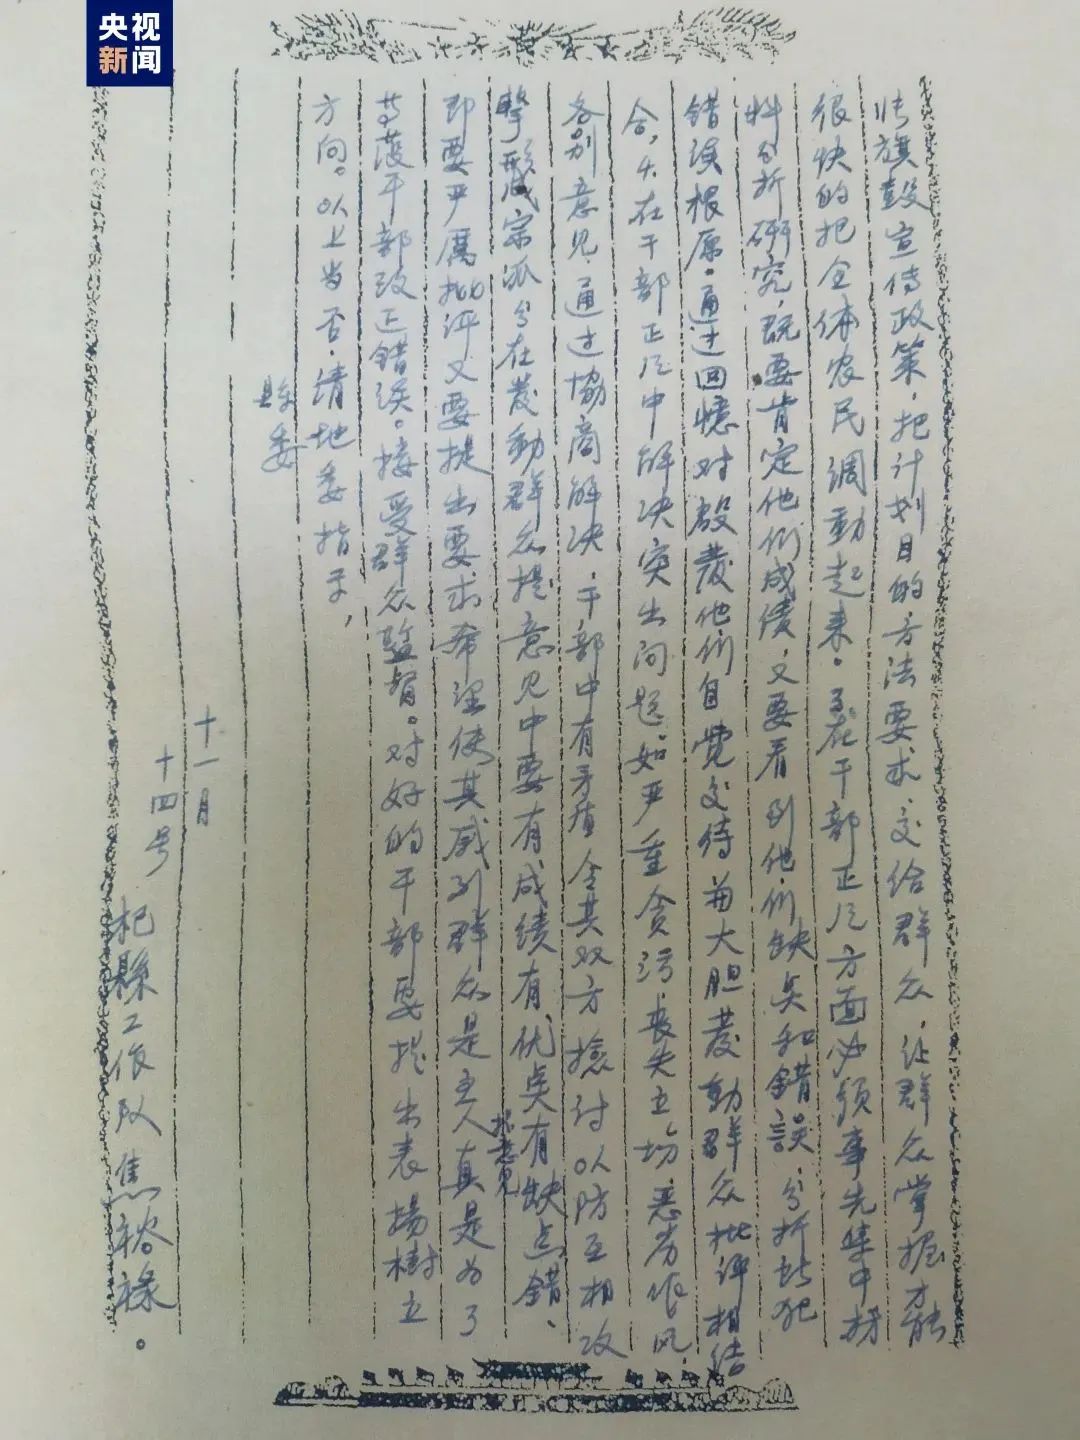 央视
新闻
旗鼓宣传政策，把计划目的方法要求交给群众，让群众掌握才能
很快的把全体农民调动起来。在干部正风方面必须事先集中材
料分析研究，既要肯定他们成绩，又要看到他们缺点和错误，分析犯
错误根原，通过回憶对啟發他们自覺交待与大胆發動群众批评相结
合，4.在干部正风中解决突出问题。如严重贪污，丧失立场，恶劣作风，
各别意见，通过協商解决，干部中有矛盾令其双方捡讨以防互相攻
擊形成宗派，在發動群众提意见中要有成绩有优点有缺点错、
提意见
即要严厲批评又要提出要求希望使其感到群众是主人真是为了
干部改正错误。接受群众監督。对好的干部要提出表揚樹立
方向。以上当否，请地委指示，
縣委
十一月
十四号
杞縣工作队焦裕禄。